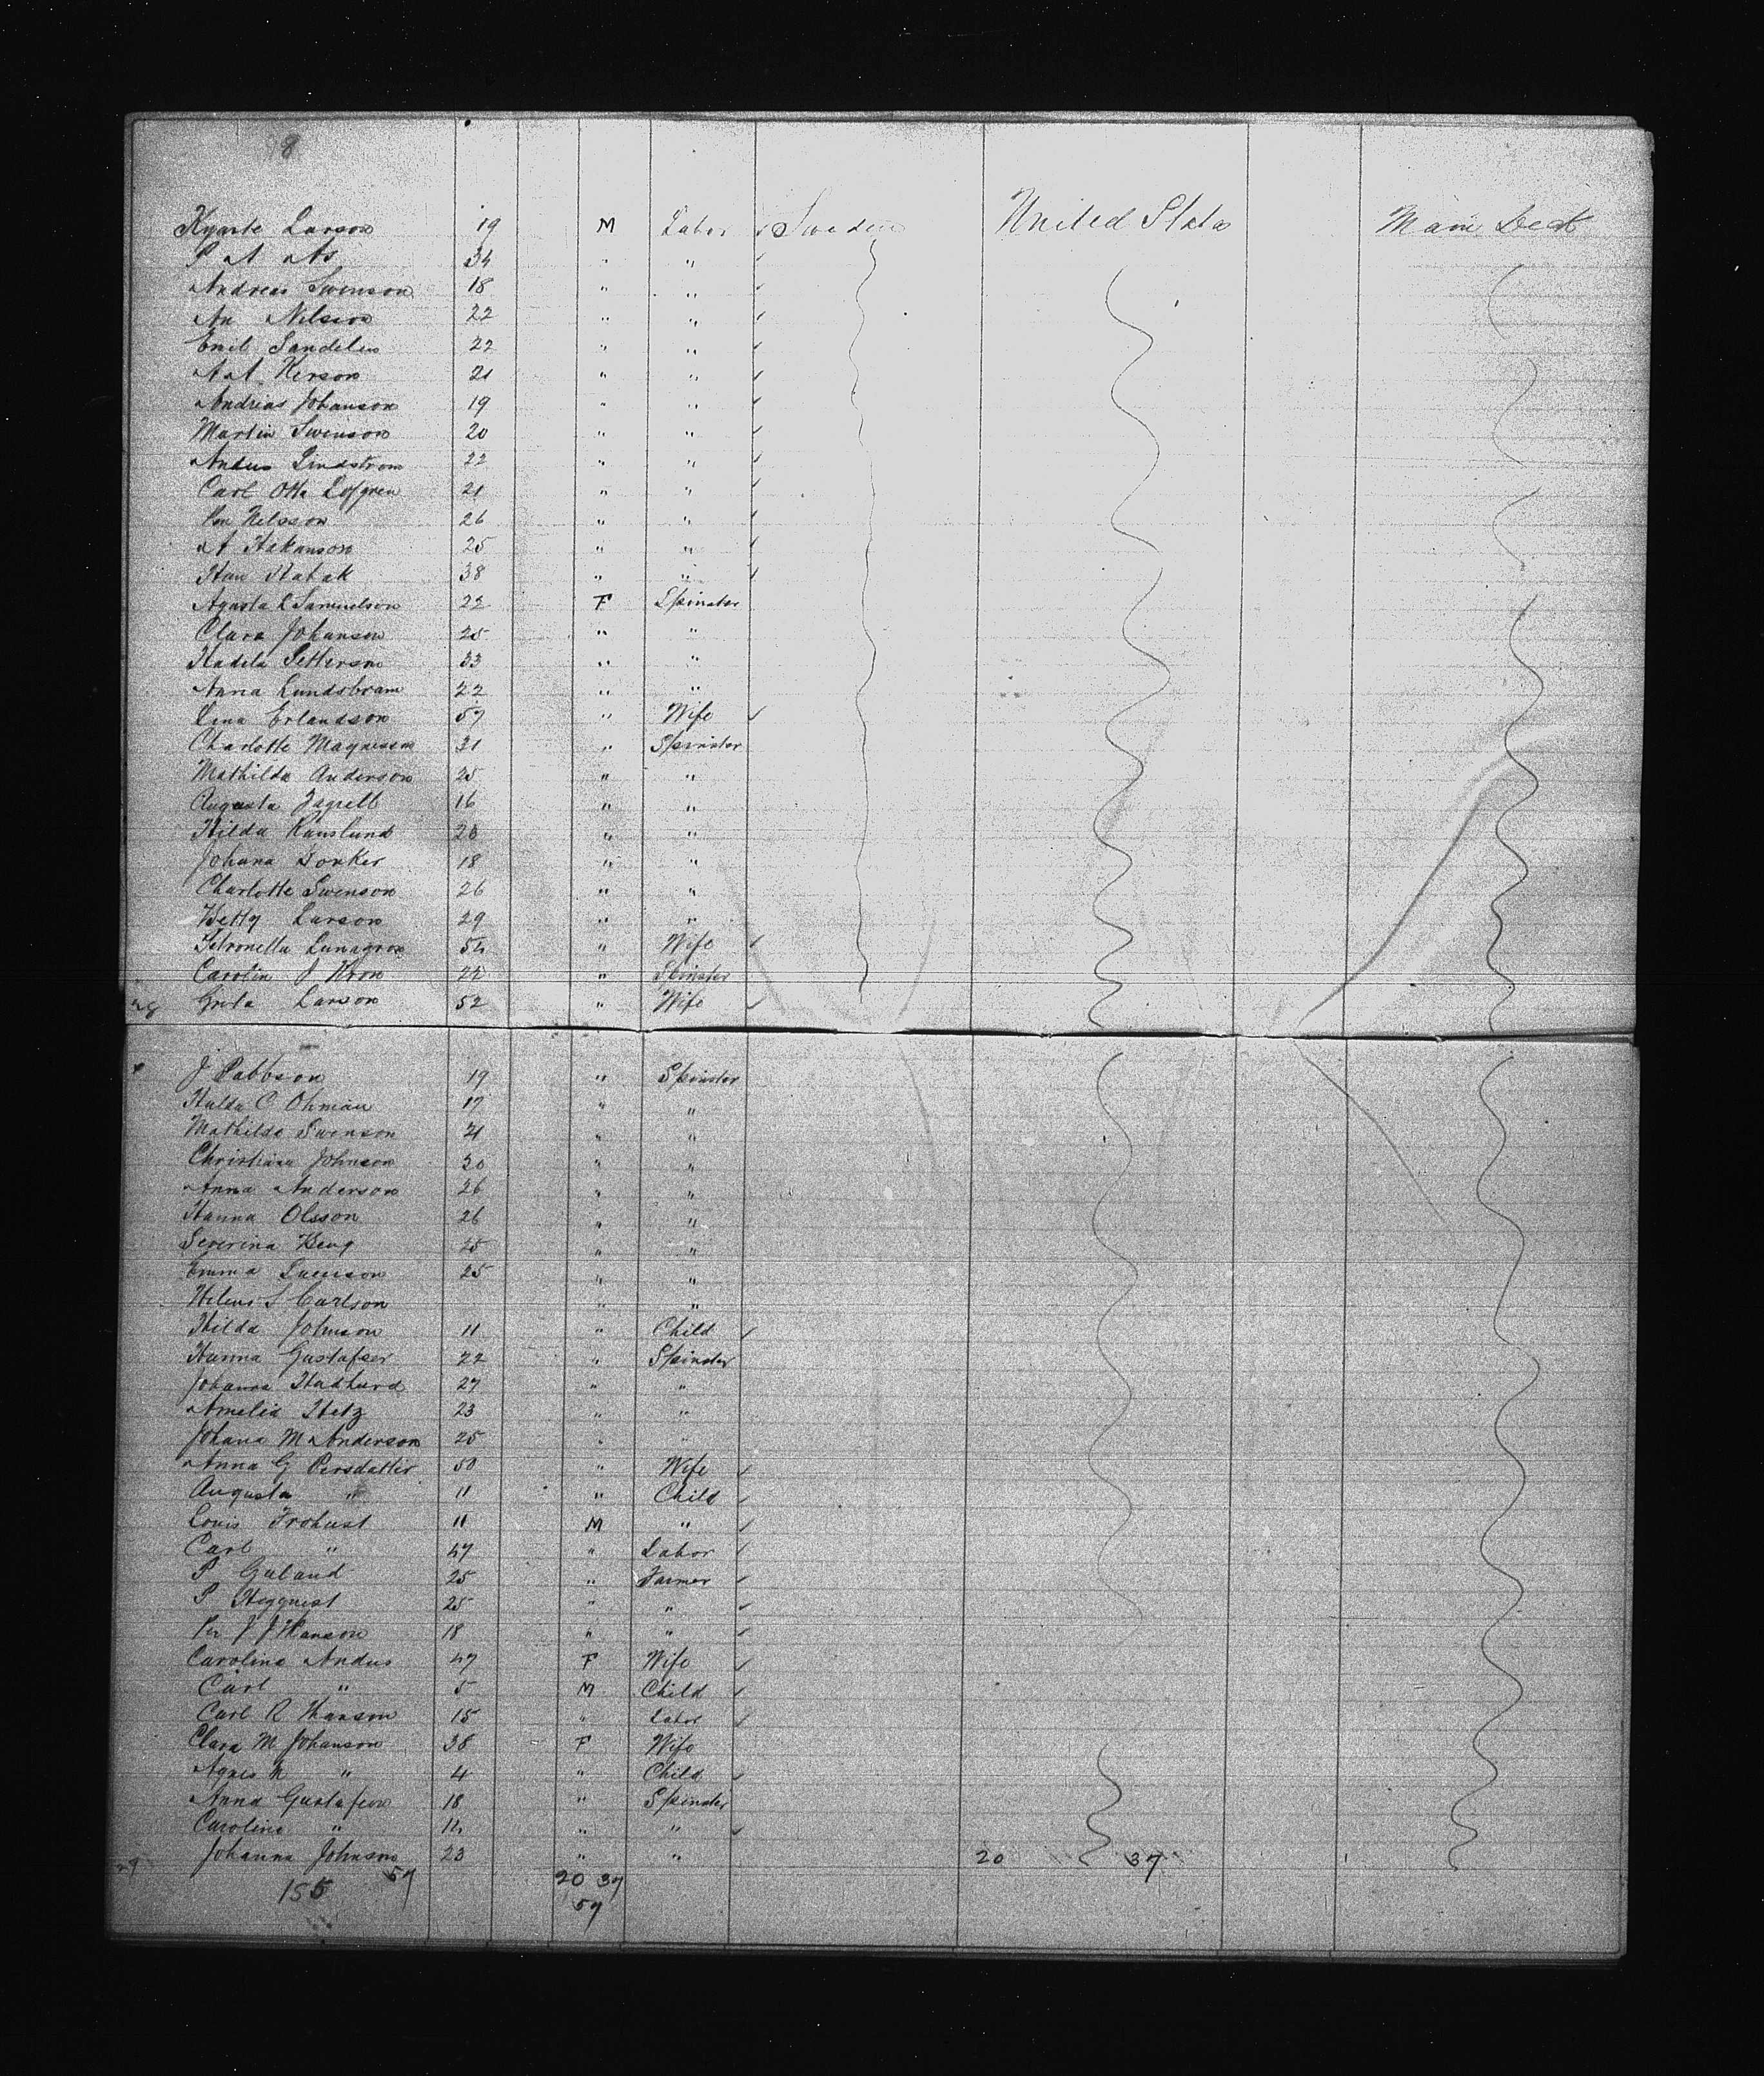 8
Kynte Larson 19 M Labor Sweden United States Main Deck
P A As 34 " "
Andreas Swenson 18 " "
An Nilsson 22 " "
Emil Sandelin 22 " "
A A Person 21 " "
Andrias Johanson 19 " "
Martin Swenson 20 " "
Andus Lindstrom 22 " "
Carl Otto Lofgren 21 " "
Per Nelsson 26 " "
A Hakanson 25 " "
38 " "
Agusta L Samuelson 22 F Spinster
Clara Johanson 25 " "
Hadela Petterson 33 " "
Anna Lundsbram 22 " "
Lina Erlandson 57 " Wife
Charlotte Magnuson 31 " Spinster
Mathilda Anderson 25 " "
Augusta Jagrell 16 " "
Hilda Ranslund 20 " "
Johana Donker 18 " "
Charlotte Swenson 26 " "
Hetty Larson 29 " "
Petronella Lunagron 54 " Wife
Carolin J Kron 22 " Spinster
Greta Larson 52 " Wife
J Pabbson 19 " Spinster
Hulda C Ohman 17 " "
Mathilda Swenson 21 " "
Christiana Johnson 30 " "
Anna Anderson 26 " "
Hanna Olsson 26 " "
Severina Beng 25 " "
Emma Swenson 25 " "
Helena S Carlson " "
Hilda Johnson 11 " Child
Hanna Gustafser 22 " Spinster
Johanna 27 " "
Amelia Hetz 23 " "
Johana M Anderson 25 " "
Anna G Persdatter 50 " Wife
Augusta " 11 " Child
Louis Frohust 11 M "
Carl " 47 " Labor
P Guland 25 " Farmer
P Hegquist 25 " "
Per J J Hanson 18 " "
Carolina Andus 47 F Wife
Carl " 5 M Child
Carl R Hanson 15 " Labor
Clara M Johanson 38 F Wife
Agnes N " 4 " Child
Anna Gustafson 18 " Spinster
Carolina " 14 " "
Johanna Johnson 23 " " 20 37
57 20 37
155 57